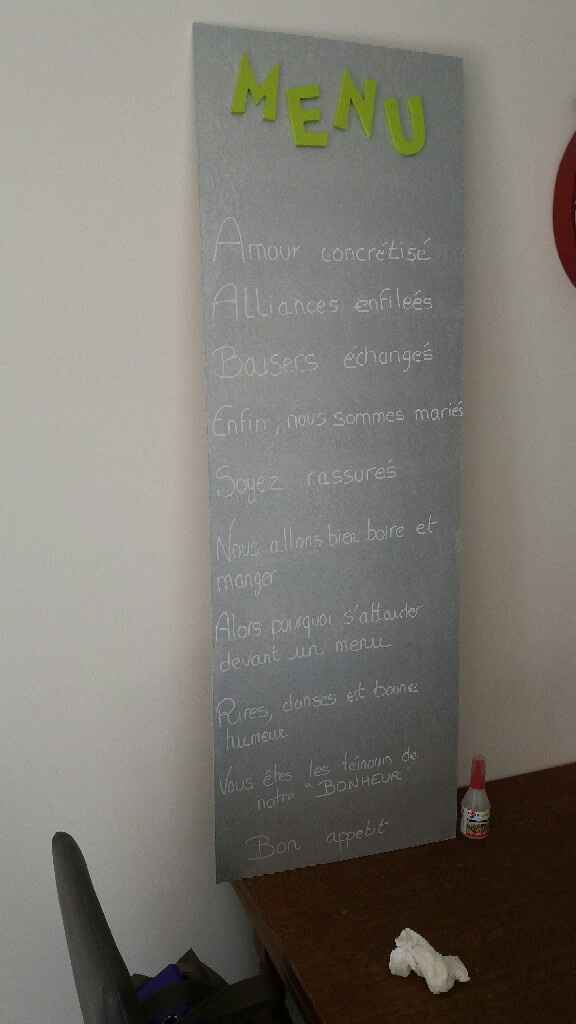 MENU
Amour concrétisé
Alliances enfileés
Baisers échangés
Enfin, nous sommes mariés
Soyez rassurés
Nous allons bien boire et
manger
Alors pourquoi s'attarder
devant un menu
Rires, danses et bonne
humeur
Vous êtes les témoins de
notre "BONHEUR"
Bon appetit